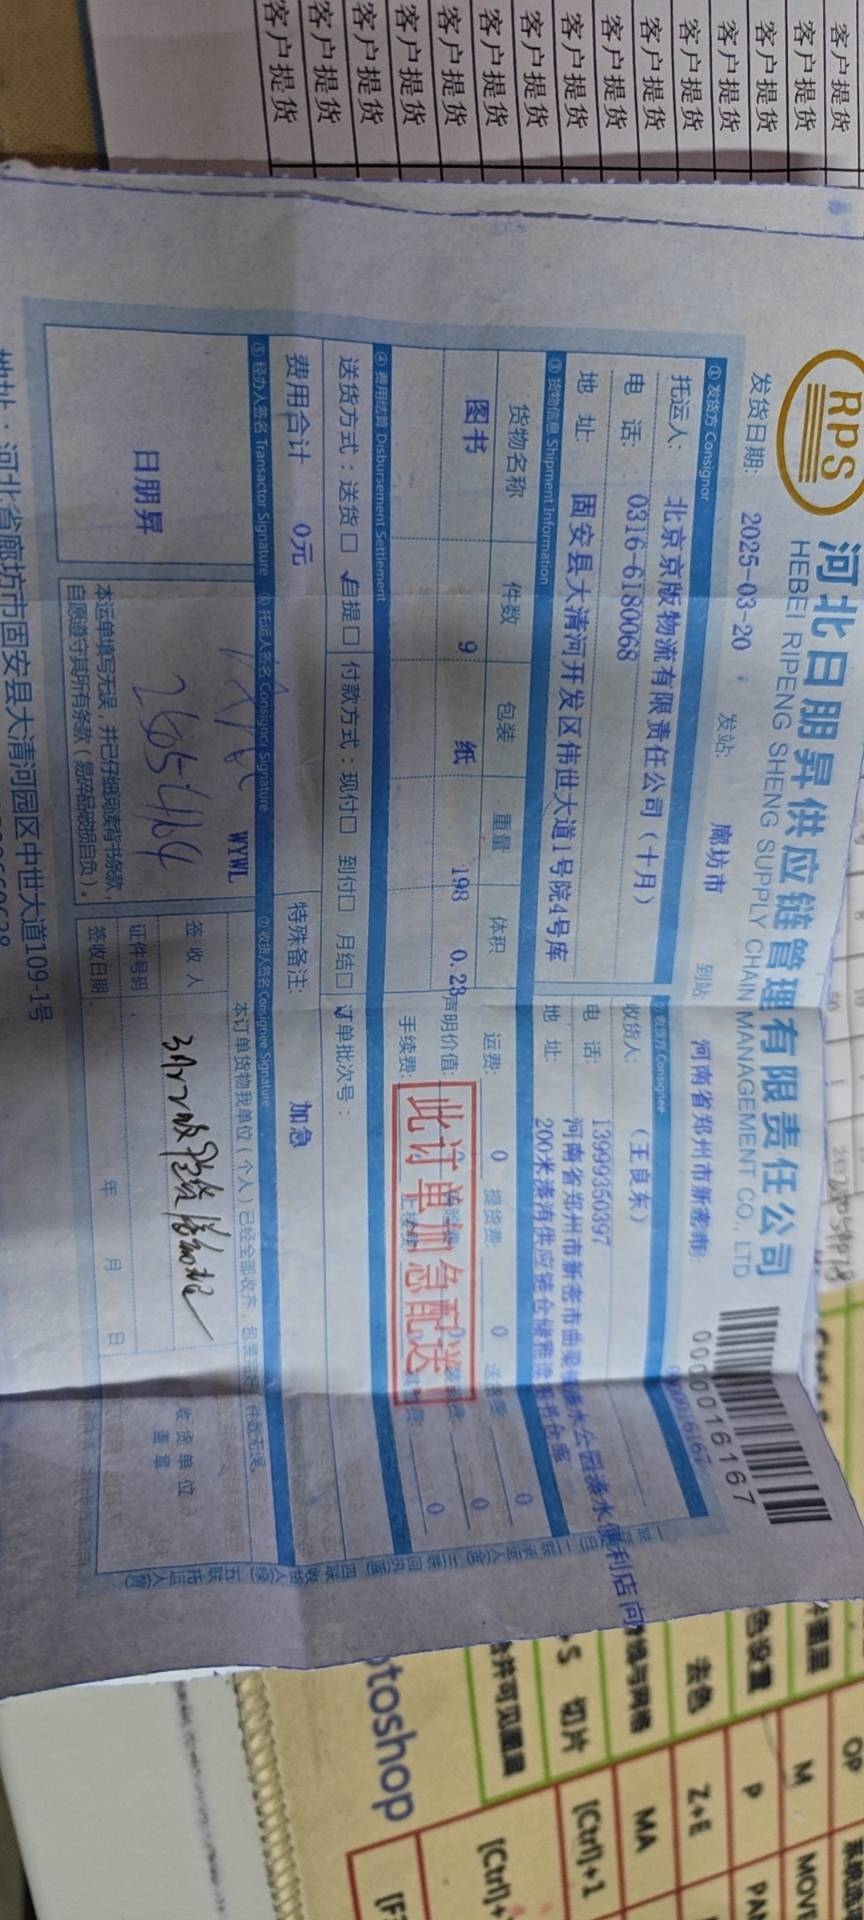 RPS
河北日朋昇供应链管理有限责任公司
HEBEI RIPENG SHENG SUPPLY CHAIN MANAGEMENT CO., LTD
0000016167
发货日期: 2025-03-20 发站: 廊坊市 到站: 河南省郑州市新密市
① 发货方 Consignor
托运人: 北京京版物流有限责任公司(十月)
电 话: 0316-6180068
地 址: 固安县大清河开发区伟世大道1号院4号库
Consignee
收货人: (王良东)
电 话: 13999350397
地 址: 河南省郑州市新密市曲梁溱水公园溱水便利店向
200米溱洧供应链仓储
③ 货物信息 Shipment Information
货物名称 件数 包装 重量 体积
图书 9 纸 198 0.23
运费: 0 提货费: 0 送货费: 0
声明价值: 0
手续费: 0
此订单加急配送
④ 费用结算 Disbursement Settlement
送货方式:送货□ 自提□ 付款方式:现付□ 到付□ 月结□ 订单批次号:
费用合计 0元 特殊备注: 加急
⑤ 经办人签名 Transactor Signature ⑥ 托运人签名 Consignor Signature ⑦ 收货人签名 Consignee Signature
日朋昇
WYWL
2605464
本运单填写无误,并已仔细阅读背书条款,
自愿遵守其所有条款(易碎品破损自负)。
本订单货物我单位(个人)已经全部收齐,包装完好,件数无误。
签 收 人
证件号码
签收日期 年 月 日
收货单位
盖章
地址:河北省廊坊市固安县大清河园区中世大道109-1号
客户提货
客户提货
客户提货
客户提货
客户提货
客户提货
客户提货
客户提货
客户提货
客户提货
客户提货
客户提货
客户提货
客户提货
色设置
去色
切片
合并可见图层
toshop
OP
M MOVE
P
Z+E
MA
[Ctrl]+1